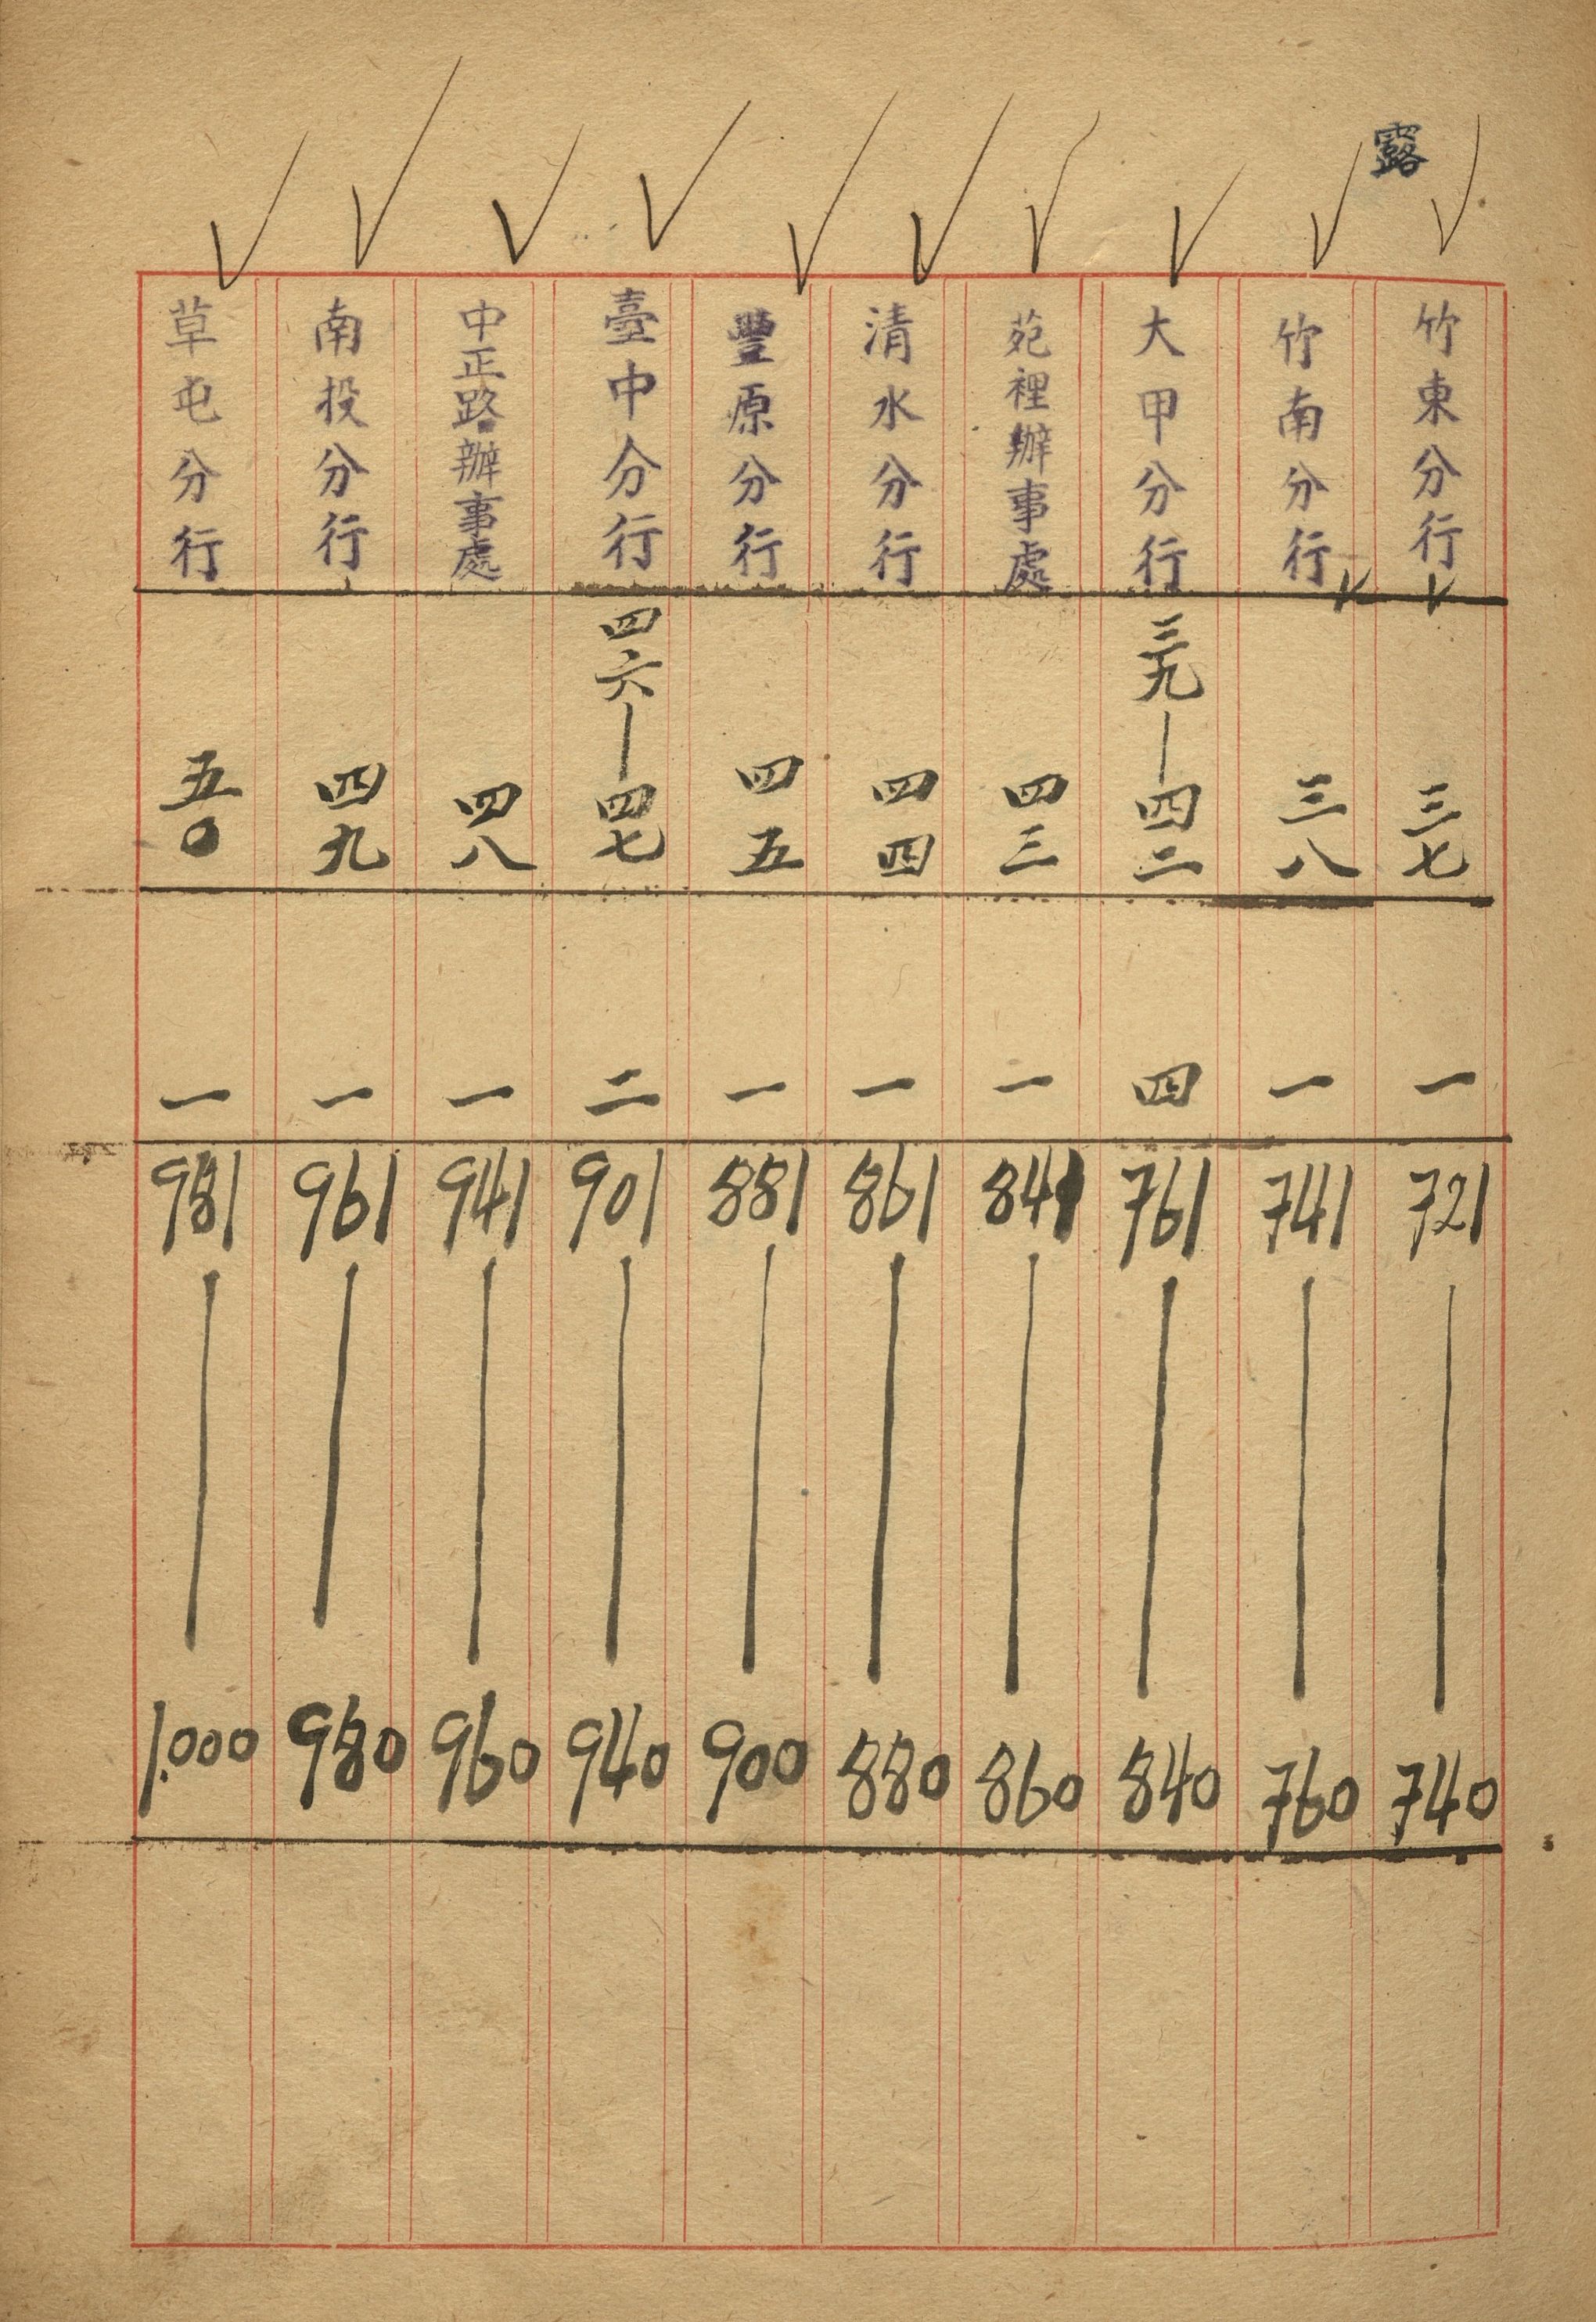 露
竹東分行 三七 一 721 740
竹南分行 三八 一 741 760
大甲分行 三九—四二 四 761 840
苑裡辦事處 四三 一 841 860
清水分行 四四 一 861 880
豐原分行 四五 一 881 900
臺中分行 四六—四七 二 901 940
中正路辦事處 四八 一 941 960
南投分行 四九 一 961 980
草屯分行 五〇 一 981 1.000